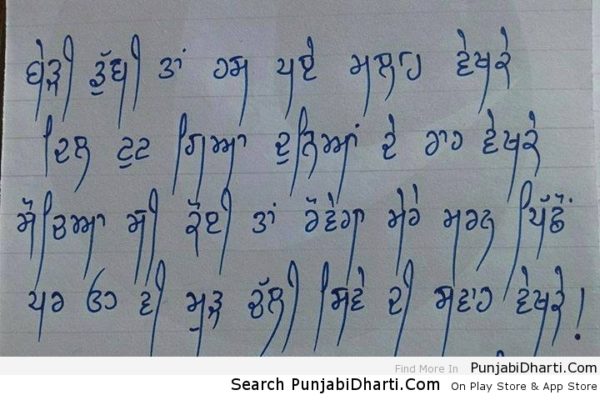 ਬੇੜੀ ਡੁੱਬੀ ਤਾਂ ਹਸ ਪਏ ਮਲਾਹ ਵੇਖਕੇ
ਦਿਲ ਟੁਟ ਗਿਆ ਦੁਨਿਆਂ ਦੇ ਰਾਹ ਵੇਖਕੇ
ਸੋਚਿਆ ਸੀ ਕੋਈ ਤਾਂ ਰੋਵੇਗਾ ਮੇਰੇ ਮਰਨ ਪਿੱਛੋਂ
ਪਰ ਓਹ ਵੀ ਮੁੜ ਚੱਲੀ ਸਿਵੇ ਦੀ ਸਵਾਹ ਵੇਖਕੇ!
Find More In PunjabiDharti.Com
Search PunjabiDharti.Com On Play Store & App Store